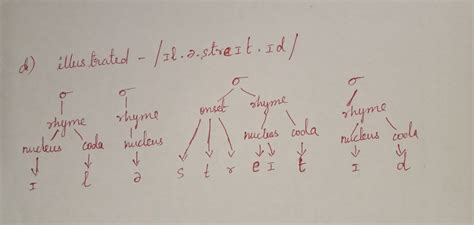 d) illustrated - /Il.ə.streIt.Id/
σ σ σ σ
rhyme rhyme onset rhyme rhyme
nucleus coda nucleus nucleus coda nucleus coda
I l ə s t r e I t I d